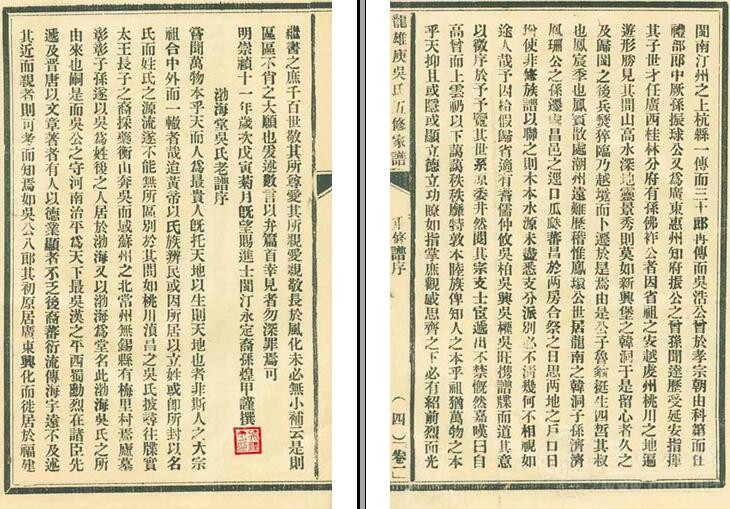 閩南汀州之上杭縣一傳而二十郎再傳而吳浩公曾於孝宗朝由科第而任
禮部郎中厥孫振球公又爲廣東惠州知府振公之曾孫聞達歷受延安指揮
其子世才任廣西桂林分府有孫佛祚公者因省祖之安越處州桃川之地遍
遊形勝見其間山高水深地靈景秀則莫如新興堡之韓洞于是留心者久之
及歸閩之後兵燹猝臨乃越境而卜遷於是焉由是公子魯挺生四哲其叔
也鳳宸季也鳳賓散處潮州遠難歷稽惟鳳環公世居龍南之韓洞子孫濟濟
鳳珊公之孫遷虔昌邑之逕口瓜瓞蕃昌於兩房合祭之日思两地之戶口日
增使非修族譜以聯之則木本水源未盡悉支分派別必不清幾何不相視如
途人哉予因給假歸省適有普儒仲攸吳柏吳興吳櫂吳旺攜譜牒而道其意
以徵序於予予覽其世系原委井然閱其宗支士宦遞出不禁慨然嘉嘆曰自
高曾而上雲礽以下藹藹秩秩靡特敦本睦族俾知人之本乎祖猶萬物之本
乎天抑且或隱或顯立德立功瞭如指掌庶觀感思齊之下必有紹前烈而光
龍雄庚吳氏五修家譜
修譜序
（四）卷一
繼書之庶千百世敬其所尊愛其所親愛親敬長於風化未必無小補云是則
區區不肖之大願也爰述數言以弁篇首幸見者勿深罪焉可
明崇禎十一年歲次戊寅菊月旣望賜進士閩汀永定裔孫煌甲謹撰
渤海堂吳氏老譜序
嘗聞萬物本乎天而人爲最貴人旣托天地以生則天地也者非斯人之大宗
祖合中外而一轍者哉迨黃帝以氏族辨民或因所居以立姓或卽所封以名
氏而姓氏之源流遂不能無所區別於其間如桃川滇昌之吳氏披尋往牒實
太王長子之裔採藥衡山奔吳而域蘇州之北常州無錫縣有梅里村焉廬墓
彰彰子孫遂以吳爲姓後之人居於渤海又以渤海爲堂名此渤海吳氏之所
由來也嗣是而吳公之守河南治平爲天下最吳漢之平西蜀勳烈在諸臣先
遞及晋唐以文章著者有人以德業顯者不乏後裔蕃衍流傳海宇遠不及述
其近而親者則可考而知焉如吳公八郎其初原居廣東興化而徙居於福建